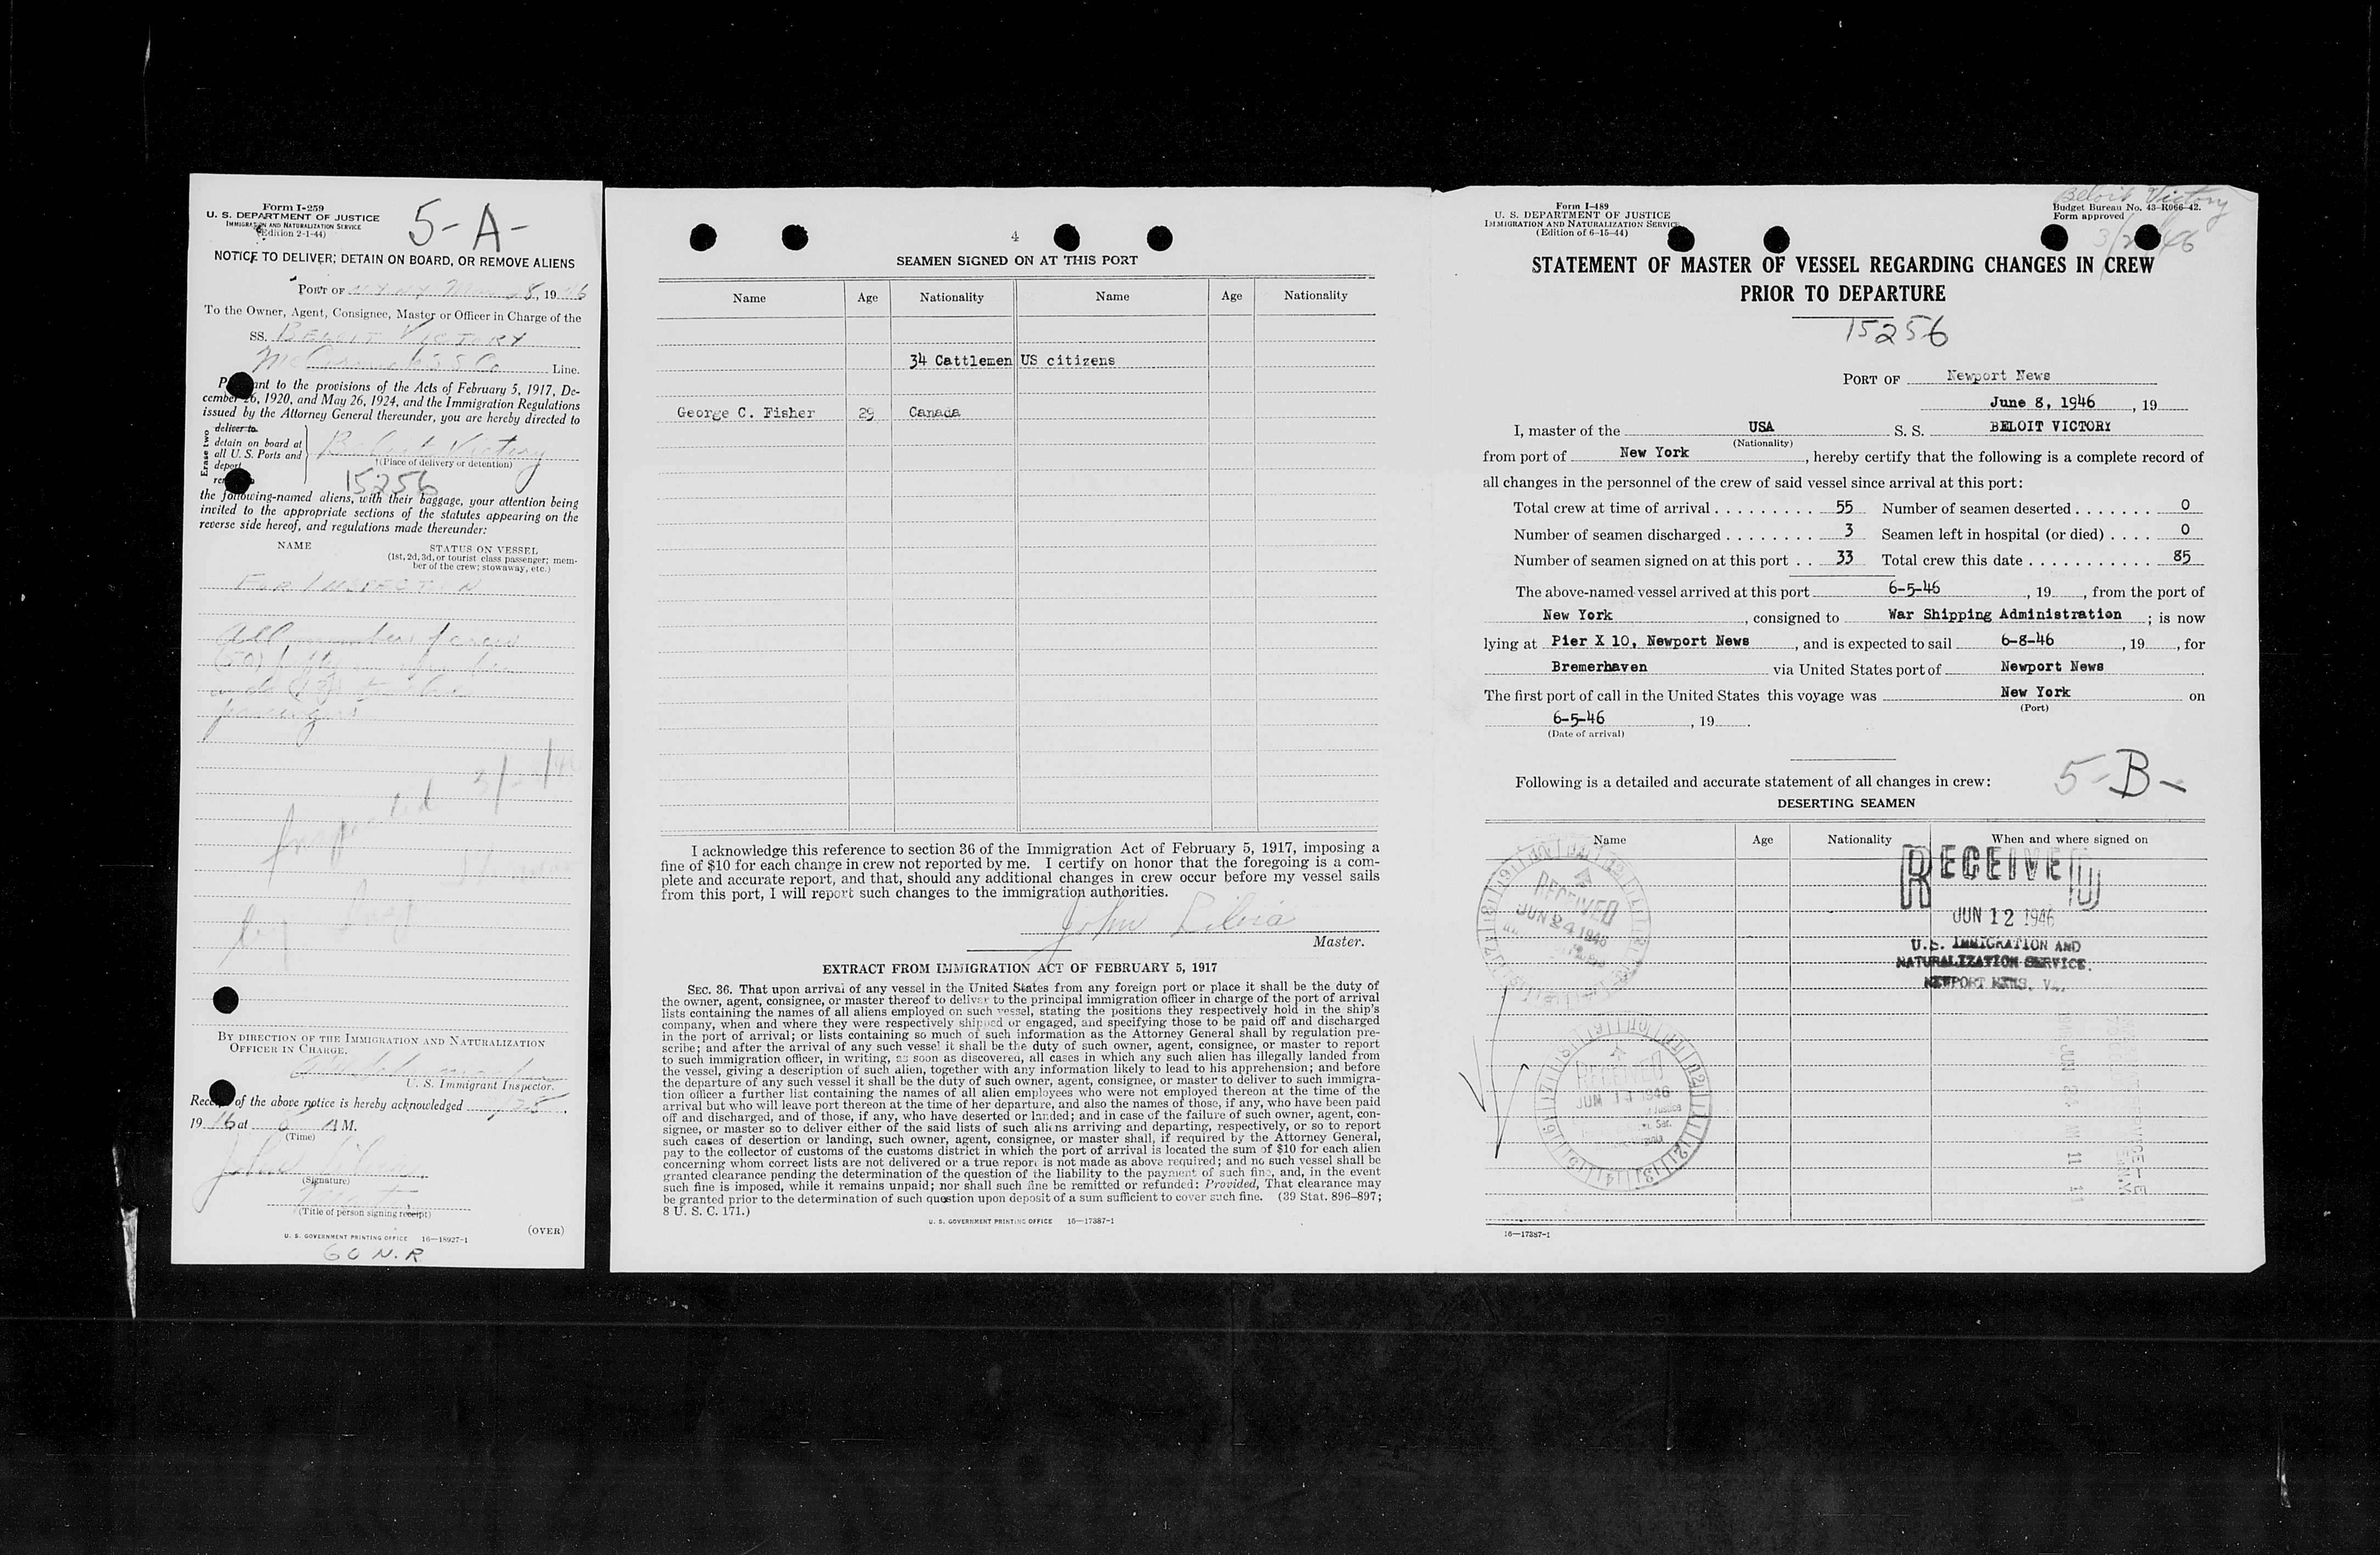 Form I-259
U. S. DEPARTMENT OF JUSTICE
IMMIGRATION AND NATURALIZATION SERVICE
(Edition 2-1-44)
5-A-
NOTICE TO DELIVER; DETAIN ON BOARD, OR REMOVE ALIENS
PORT OF N Y N Y Mar 28, 1946
To the Owner, Agent, Consignee, Master or Officer in Charge of the
SS. BELOIT VICTORY
McCormick S S Co Line.
Pursuant to the provisions of the Acts of February 5, 1917, De-
cember 26, 1920, and May 26, 1924, and the Immigration Regulations
issued by the Attorney General thereunder, you are hereby directed to
Erase two
deliver to
detain on board at
all U. S. Ports and
deport
Beloit Victory
†(Place of delivery or detention)
15256
the following-named aliens, with their baggage, your attention being
invited to the appropriate sections of the statutes appearing on the
reverse side hereof, and regulations made thereunder:
NAME
STATUS ON VESSEL
(1st, 2d, 3d, or tourist class passenger; mem-
ber of the crew; stowaway, etc.)
FOR INSPECTION
All members of crew
(50) fifty
passengers
Inspected
BY DIRECTION OF THE IMMIGRATION AND NATURALIZATION
OFFICER IN CHARGE.
U. S. Immigrant Inspector.
Receipt of the above notice is hereby acknowledged
1946 at A M.
(Time)
John Silvia
(Signature)
(Title of person signing receipt)
(OVER)
U. S. GOVERNMENT PRINTING OFFICE 16—18927-1
60 N.R
4
SEAMEN SIGNED ON AT THIS PORT
Name Age Nationality Name Age Nationality
34 Cattlemen US citizens
George C. Fisher 29 Canada
I acknowledge this reference to section 36 of the Immigration Act of February 5, 1917, imposing a
fine of $10 for each change in crew not reported by me. I certify on honor that the foregoing is a com-
plete and accurate report, and that, should any additional changes in crew occur before my vessel sails
from this port, I will report such changes to the immigration authorities.
John Silvia
Master.
EXTRACT FROM IMMIGRATION ACT OF FEBRUARY 5, 1917
SEC. 36. That upon arrival of any vessel in the United States from any foreign port or place it shall be the duty of
the owner, agent, consignee, or master thereof to deliver to the principal immigration officer in charge of the port of arrival
lists containing the names of all aliens employed on such vessel, stating the positions they respectively hold in the ship's
company, when and where they were respectively shipped or engaged, and specifying those to be paid off and discharged
in the port of arrival; or lists containing so much of such information as the Attorney General shall by regulation pre-
scribe; and after the arrival of any such vessel it shall be the duty of such owner, agent, consignee, or master to report
to such immigration officer, in writing, as soon as discovered, all cases in which any such alien has illegally landed from
the vessel, giving a description of such alien, together with any information likely to lead to his apprehension; and before
the departure of any such vessel it shall be the duty of such owner, agent, consignee, or master to deliver to such immigra-
tion officer a further list containing the names of all alien employees who were not employed thereon at the time of the
arrival but who will leave port thereon at the time of her departure, and also the names of those, if any, who have been paid
off and discharged, and of those, if any, who have deserted or landed; and in case of the failure of such owner, agent, con-
signee, or master so to deliver either of the said lists of such aliens arriving and departing, respectively, or so to report
such cases of desertion or landing, such owner, agent, consignee, or master shall, if required by the Attorney General,
pay to the collector of customs of the customs district in which the port of arrival is located the sum of $10 for each alien
concerning whom correct lists are not delivered or a true report is not made as above required; and no such vessel shall be
granted clearance pending the determination of the question of the liability to the payment of such fine, and, in the event
such fine is imposed, while it remains unpaid; nor shall such fine be remitted or refunded: Provided, That clearance may
be granted prior to the determination of such question upon deposit of a sum sufficient to cover such fine. (39 Stat. 896-897;
8 U. S. C. 171.)
U. S. GOVERNMENT PRINTING OFFICE 16—17387-1
Form I-489
U. S. DEPARTMENT OF JUSTICE
IMMIGRATION AND NATURALIZATION SERVICE
(Edition of 6-15-44)
Beloit Victory
Budget Bureau No. 43-R066-42.
Form approved
STATEMENT OF MASTER OF VESSEL REGARDING CHANGES IN CREW
PRIOR TO DEPARTURE
15256
PORT OF Newport News
June 8, 1946, 19
I, master of the USA S. S. BELOIT VICTORY
(Nationality)
from port of New York, hereby certify that the following is a complete record of
all changes in the personnel of the crew of said vessel since arrival at this port:
Total crew at time of arrival . . . . . . . . . 55 Number of seamen deserted . . . . . . . 0
Number of seamen discharged . . . . . . . . 3 Seamen left in hospital (or died) . . . . 0
Number of seamen signed on at this port . . 33 Total crew this date . . . . . . . . . . . 85
The above-named vessel arrived at this port 6-5-46, 19, from the port of
New York, consigned to War Shipping Administration; is now
lying at Pier X 10, Newport News, and is expected to sail 6-8-46, 19, for
Bremerhaven via United States port of Newport News
The first port of call in the United States this voyage was New York on
(Port)
6-5-46, 19
(Date of arrival)
Following is a detailed and accurate statement of all changes in crew:
5-B-
DESERTING SEAMEN
Name Age Nationality When and where signed on
RECEIVED
JUN 12 1946
U.S. IMMIGRATION AND
NATURALIZATION SERVICE.
NEWPORT NEWS, VA.
RECEIVED
JUN 24 1946
RECEIVED
JUN 14 1946
16—17387-1